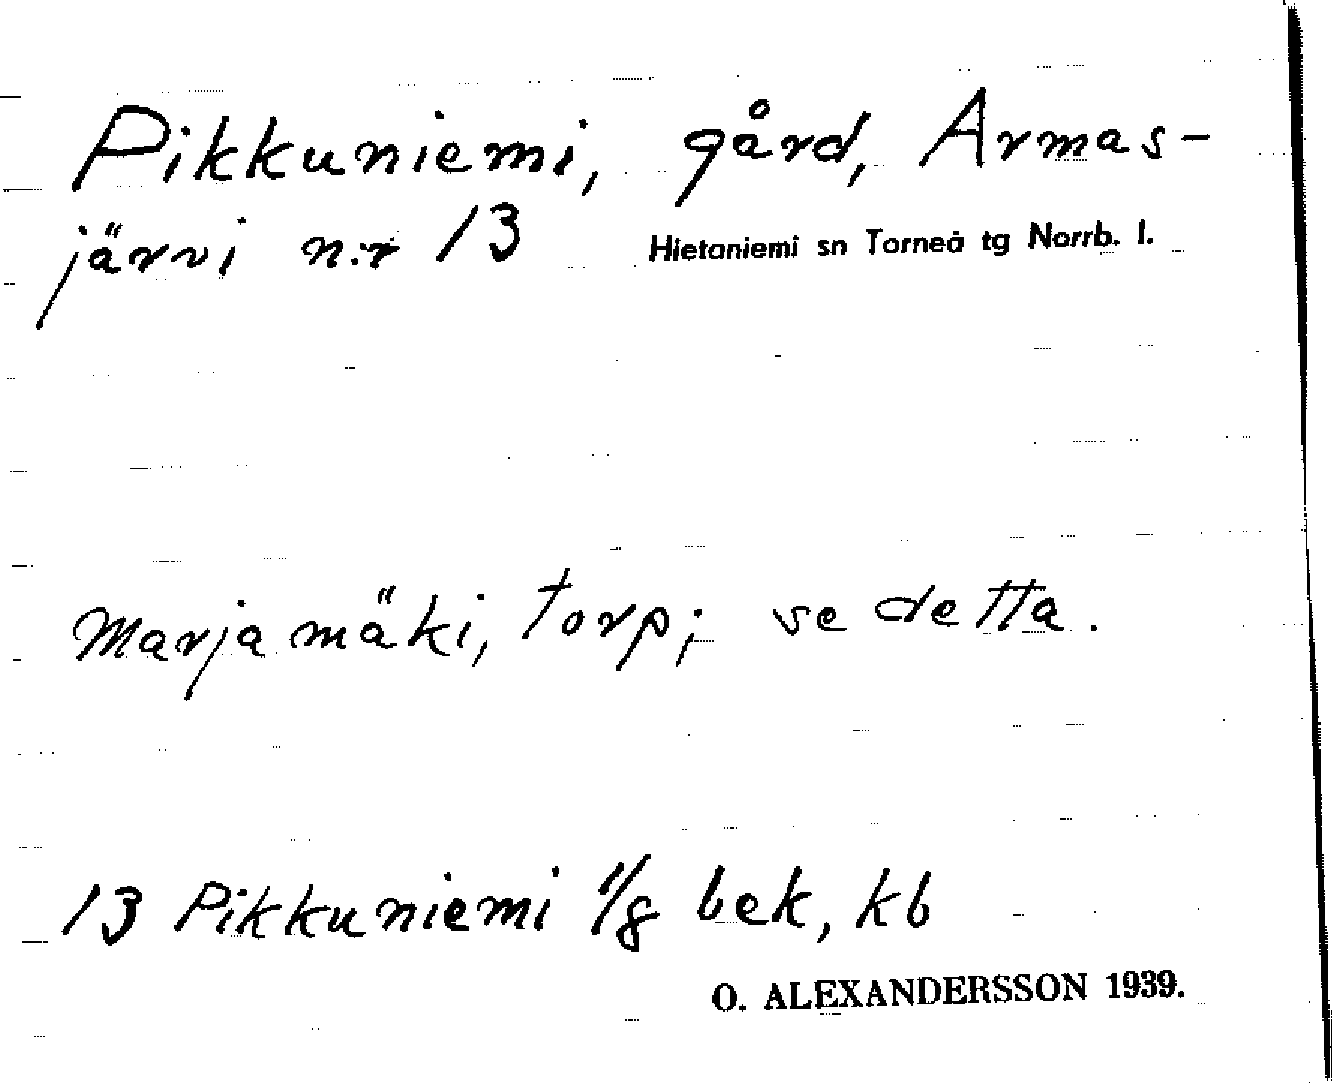 Pikkuniemi, gård, Armas-
järvi n:r 13 Hietaniemi sn Torneå tg Norrb. l.
Marjamäki, torp; se detta.
13 Pikkuniemi 1/8 bek, kb
O. ALEXANDERSSON 1939.